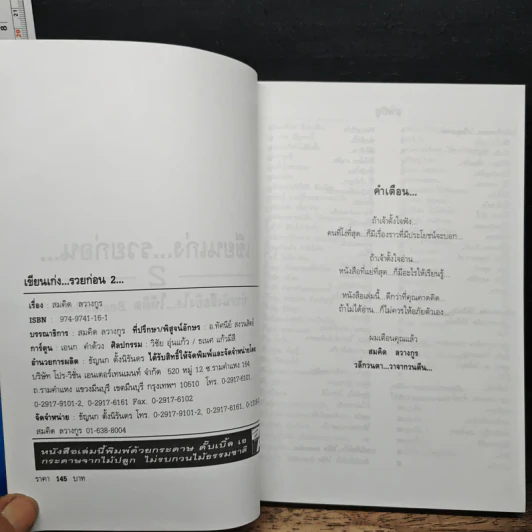 เขียนเก่ง...รวยก่อน 2...
เรื่อง : สมคิด ลวางกูร
ISBN : 974-9741-16-1
บรรณาธิการ : สมคิด ลวางกูร ที่ปรึกษา/พิสูจน์อักษร : อ.ทัศนีย์ สงวนสัตย์
การ์ตูน : เอนก คำด้วง ศิลปกรรม : วิชัย อุ่นแก้ว / ธเนศ แก้วมีสี
อำนวยการผลิต : ธัญนก ตั้งนิรันดร ได้รับสิทธิ์ให้จัดพิมพ์และจัดจำหน่ายโดย
บริษัท โปร-วิชั่น เอนเตอร์เทนเมนท์ จำกัด 520 หมู่ 12 ซ.รามคำแหง 164
ถ.รามคำแหง แขวงมีนบุรี เขตมีนบุรี กรุงเทพฯ 10510 โทร. 0-2917-6161,
0-2917-9101-2, 0-2917-6161 Fax. 0-2917-6102
จัดจำหน่าย : ธัญนก ตั้งนิรันดร โทร. 0-2917-9101-2, 0-2917-6161,
สมคิด ลวางกูร 01-638-8004
หนังสือเล่มนี้พิมพ์ด้วยกระดาษ ดับเบิ้ล เอ
กระดาษจากไม้ปลูก ไม่รบกวนไม้ธรรมชาติ
ราคา 145 บาท
คำเตือน...
ถ้าเจ้าตั้งใจฟัง...
คนที่โง่ที่สุด...ก็มีเรื่องราวที่มีประโยชน์จะบอก...
ถ้าเจ้าตั้งใจอ่าน...
หนังสือที่แย่ที่สุด...ก็มีอะไรให้เรียนรู้...
หนังสือเล่มนี้...ดีกว่าที่คุณคาดคิด...
ถ้าไม่ได้อ่าน...ก็ไม่ควรให้อภัยตัวเอง...
ผมเตือนคุณแล้ว
สมคิด ลวางกูร
วลีกวนตา...วาจากวนตีน...